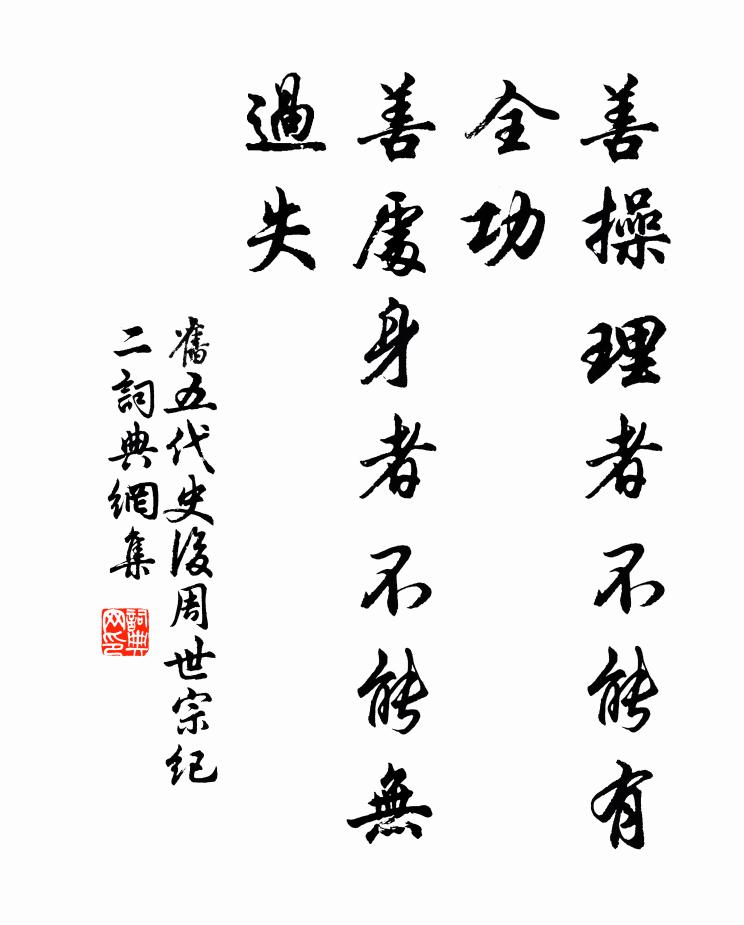 善操理者不能有
全功
善處身者不能無
過失
舊五代史後周世宗紀
二詞典網集
詞典
网印